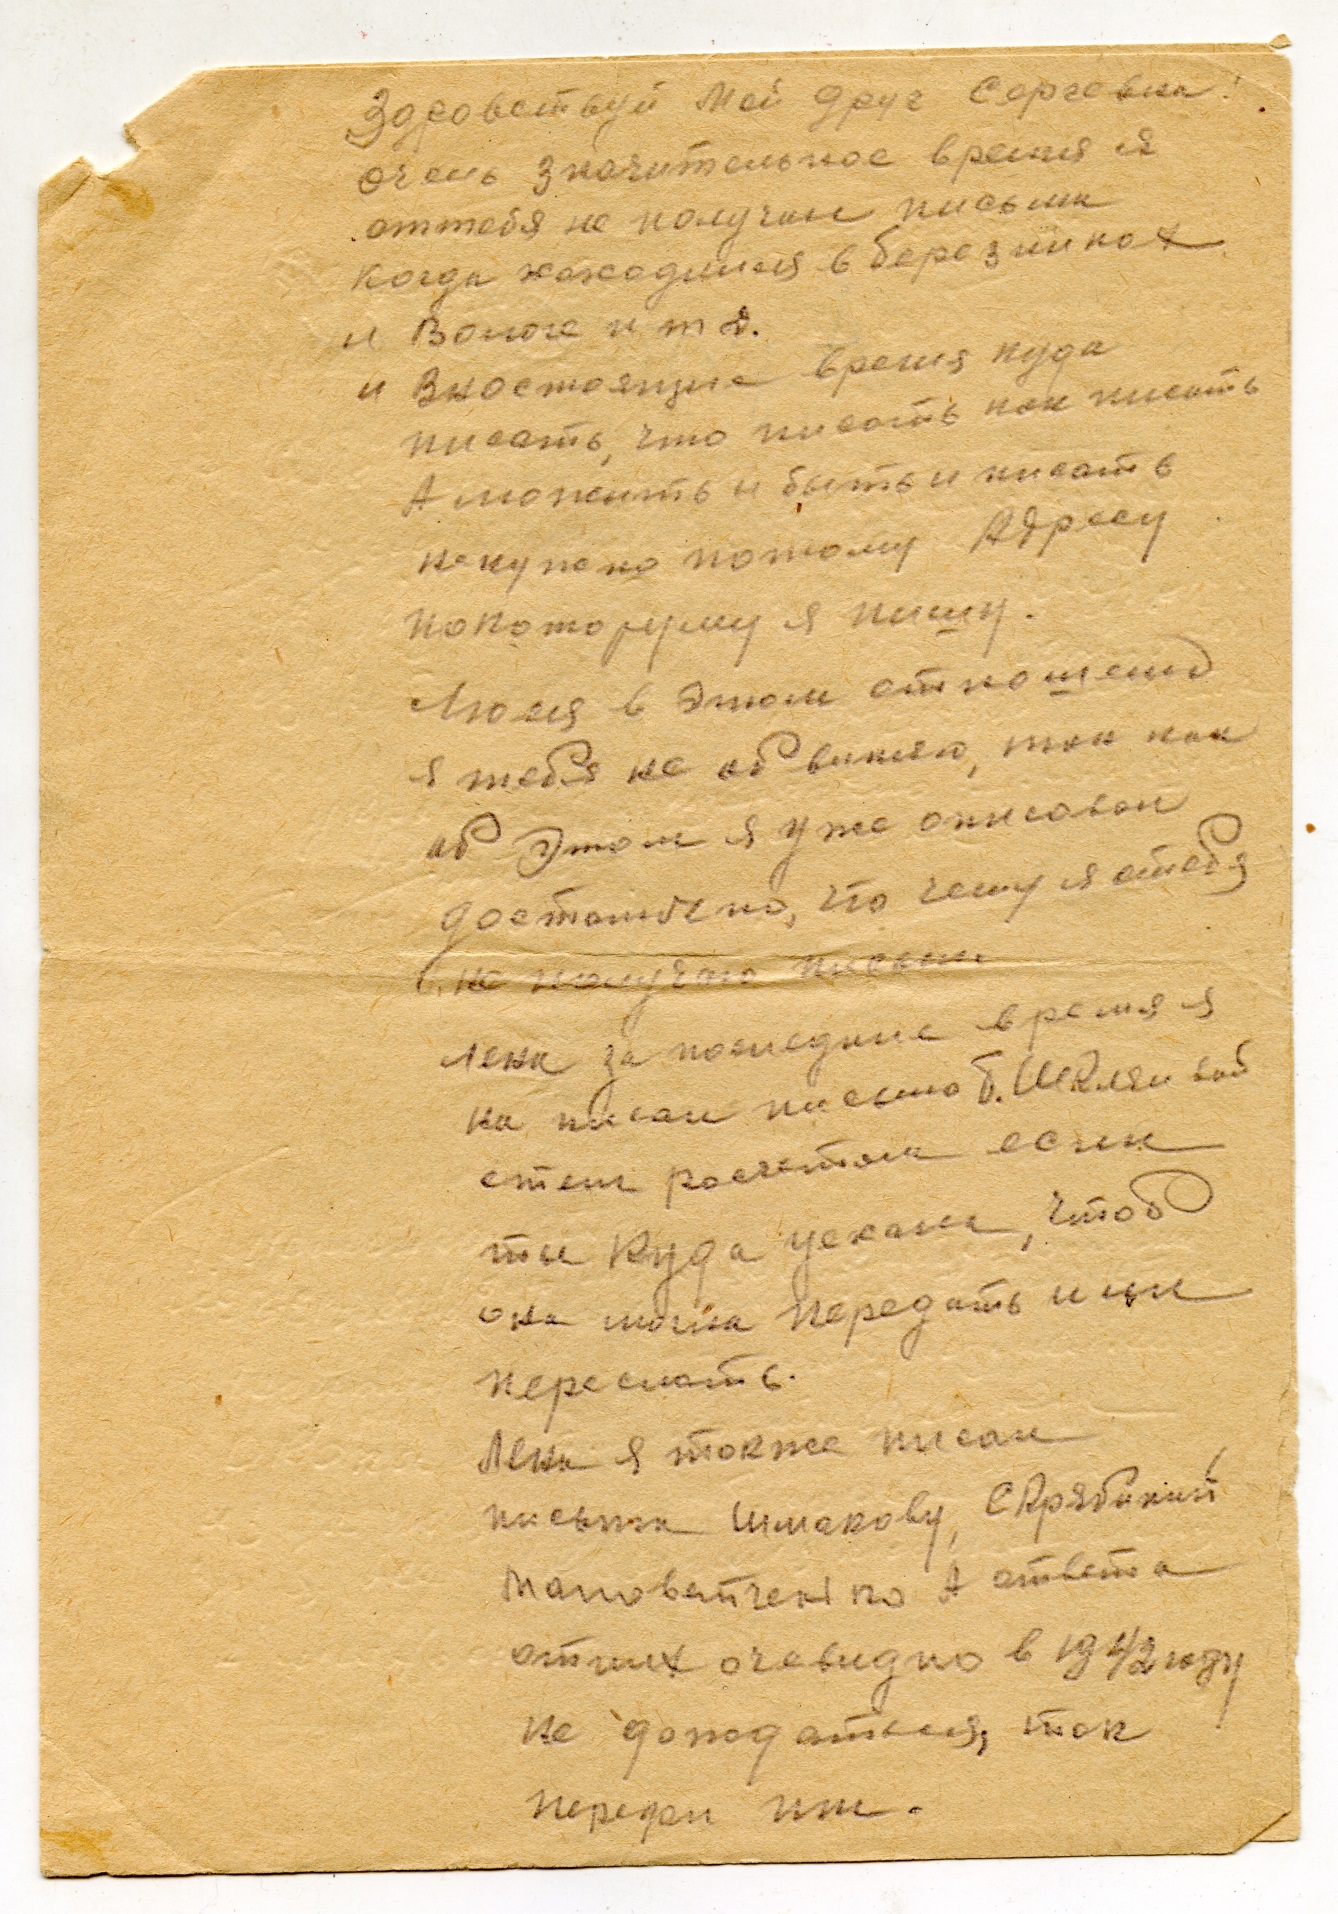 Здравствуй Мой друг Сергевна!
очень значительное время я
оттебя не получал письма
когда находился в березниках
и Вологе и т д.
и Внастоящие время куда
писать, что писать как писать
А можить и быть и писать
ненужно потому Адресу
покоторуму я пишу.
Люся в этом отношение
я тебя не обвиняю, так как
об Этом я уже описовал
достаточно, что чему я отебя
не получаю письма
Лена за последние время я
на писал письмо Шкляевой
стем расчетом если
ты Куда уехала, чтоб
она могла передать или
переслать.
Лена я также писал
письма Шмакову, Скрябиний
А ответа
отних очевидно в 1942 году
не дождаться, так
передай им.